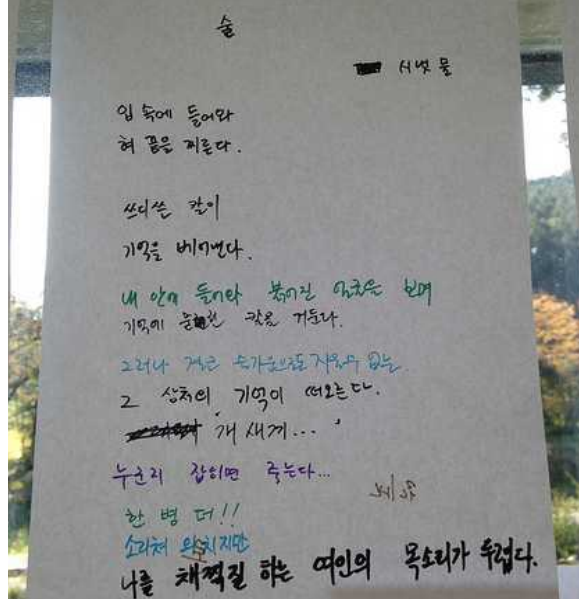 술
시냇물
입 속에 들어와
혀 끝을 찌른다.
쓰디쓴 칼이
기억을 베어낸다.
내 안에 들어와 붉어진 얼굴을 보며
기억에 칼을 거둔다.
그러나 손가움으로도 지울수 없는
그 상처의 기억이 떠오른다.
개 새끼...
누군지 잡히면 죽는다...
한 병 더!!
소리쳐 외치지만
나를 채찍질 하는 여인의 목소리가 두렵다.